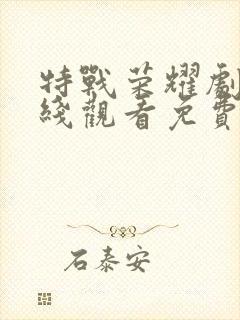 特戰荣耀劇
綫觀看免費
石泰安